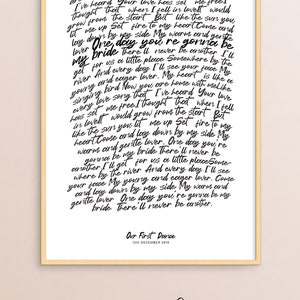 I've heard Your love would
hers set me free I thought that when I fell in love would
grow from the start But like the sun you
lit me up Set fire to my heart Come and
lay down by my side My warm and gentle
lover One day you're gonna be
my bride there'll never be another
I'll get for us a little place Somewhere by the
river And every day I'll see your face My
young and eager lover. My heart is like a
singing bird Now you are home with me like
every love song that I've heard Your
set me free I thought that when I fell
in love would grow from the start But
like the sun you lit me up Set fire to my
heart Come and lay down by my side My
warm and gentle lover. One day you're
gonna be my bride there'll never be
another I'll get for us a little place Some-
where by the river And every day I'll see
your face My young and eager lover. Come
and lay down by my side My warm and
gentle lover. One day you're gonna be my
bride there'll never be another.
Our First Dance
DECEMBER